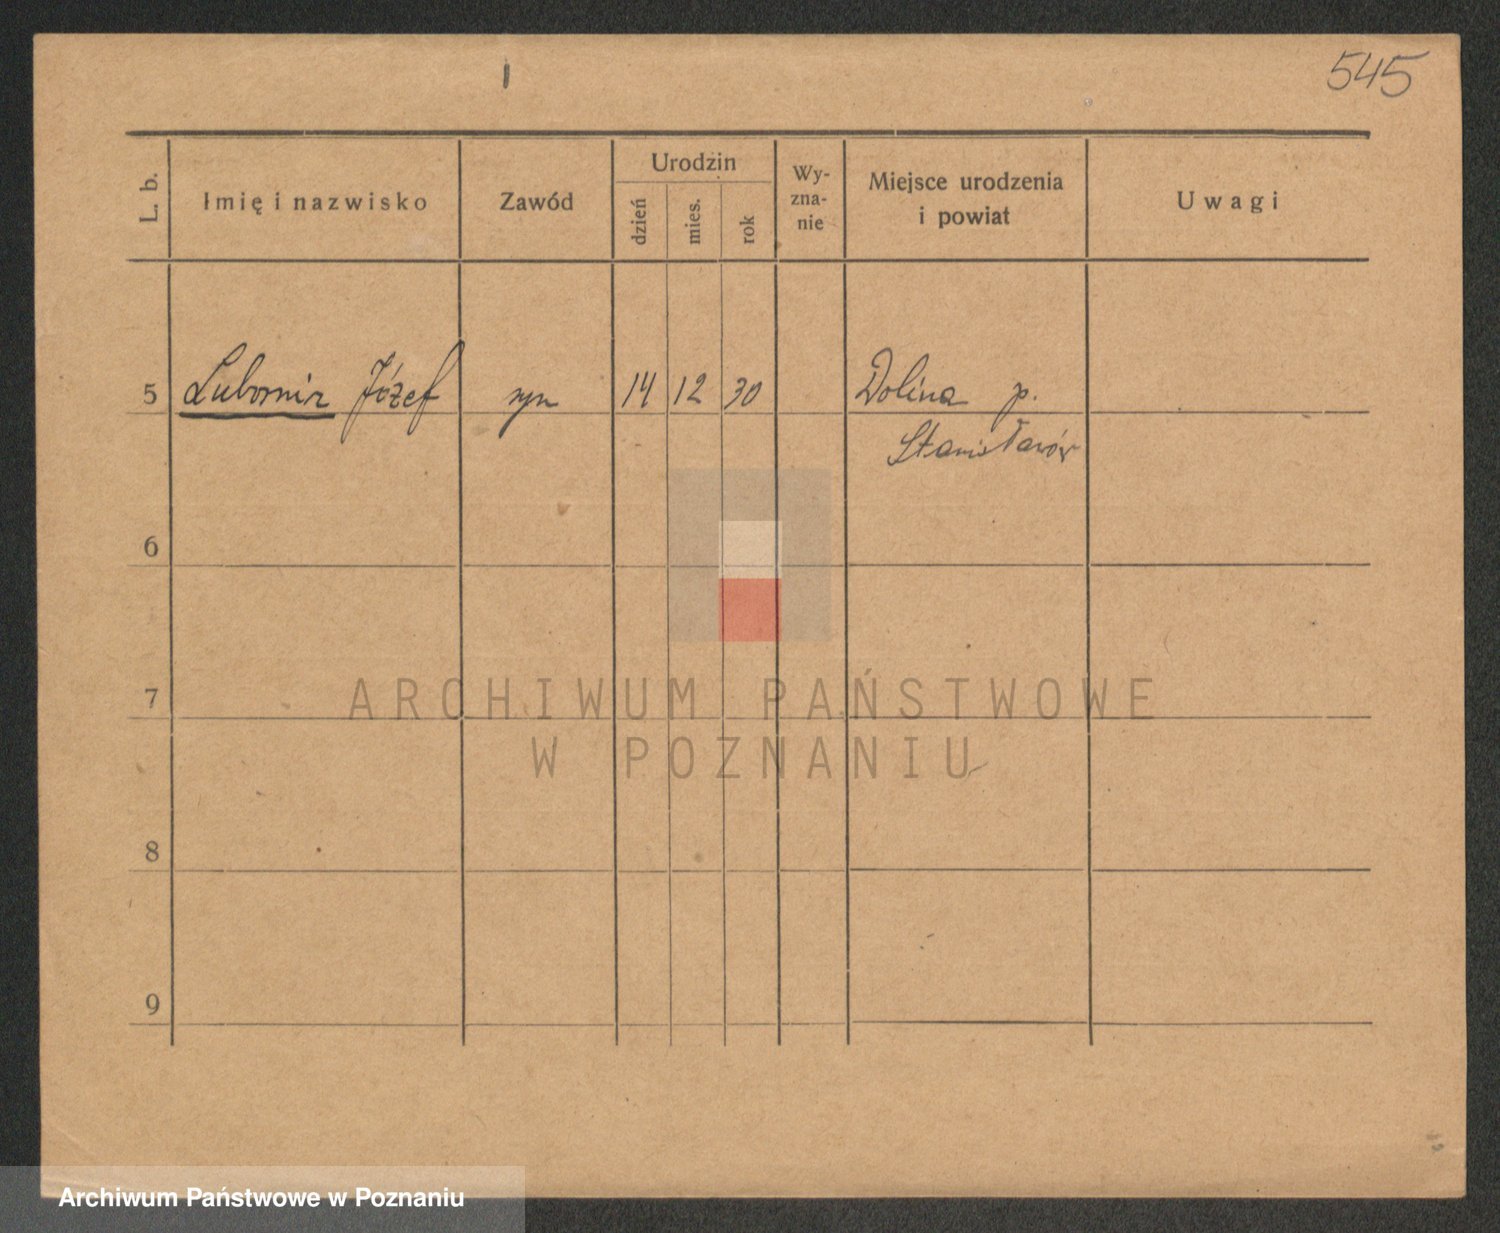 545
L. b.
Imię i nazwisko
Zawód
Urodzin
dzień
mies.
rok
Wy-
zna-
nie
Miejsce urodzenia
i powiat
Uwagi
5 Lubomir Józef syn 14 12 30 Dolina p.
Stanisławów
6
7
8
9
ARCHIWUM PAŃSTWOWE
W POZNANIU
Archiwum Państwowe w Poznaniu